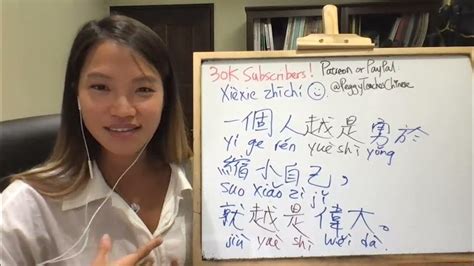 30K Subscribers!
Patreon or PayPal
@PeggyTeachesChinese
Xièxie zhīchí ☺
一個人越是勇於
yí ge rén yuè shì yǒng
縮小自己，
suō xiǎo zì jǐ
就越是偉大。
jiù yuè shì wěi dà.